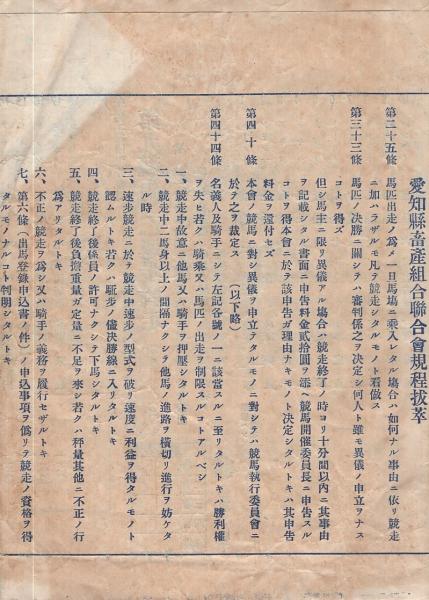 愛知縣畜產組合聯合會規程拔萃
第二十五條 馬匹出走ノ爲メ一旦馬場ニ乘入シタル塲合ハ如何ナル事由ニ依リ競走
ニ加ハラザルモ凡テ競走シタルモノト看做ス
第三十三條 馬匹ノ決勝ニ關シテハ審判係之ヲ決定シ何人ト雖モ異儀ノ申立ヲナス
コトヲ得ズ
但シ馬主ニ限リ異儀アル塲合ハ競走終了ノ時ヨリ十分間以內ニ其事由
ヲ記載シタル書面ニ申告料金貳拾圓ヲ添ヘ競馬開催委員長ニ申告スル
コトヲ得本會ニ於テ該申告ガ理由ナキモノト決定シタルトキハ其申告
料金ヲ還付セズ
第四十條 本會ノ競馬ニ對シ異儀ヲ申立テタルモノニ對シテハ競馬執行委員會ニ
於テ之ヲ裁定ス (以下略)
第四十四條 名義人及騎手ニシテ左記各號ノ一ニ該當スルニ至リタルトキハ勝利權
ヲ失ヒ若クハ騎乘又ハ馬匹ノ出走ヲ制限スルコトアルベシ
一、競走中故意ニ他馬又ハ騎手ヲ押壓シタルトキ
二、競走中二馬身以上ノ間隔ナクシテ他馬ノ進路ヲ橫切リ進行ヲ妨ケタ
ル時
三、速步競走ニ於テ競走中速步ノ型式ヲ破リ速度ニ利益ヲ得タルモノト
認ムルトキ若クハ駈步ノ儘決勝線ニ入リタルトキ
四、競走終了後係員ノ許可ナクシテ下馬シタルトキ
五、競走終了後負擔重量ガ定量ニ不足ヲ來シ若クハ秤量其他ニ不正ノ行
爲アリタルトキ
六、不正ノ競走ヲ爲シ又ハ騎手ノ義務ヲ履行セザルトキ
七、第六條(出馬登錄申込書ノ件)ノ申込事項ヲ僞リテ競走ノ資格ヲ得
タルモノナルコト判明シタルトキ